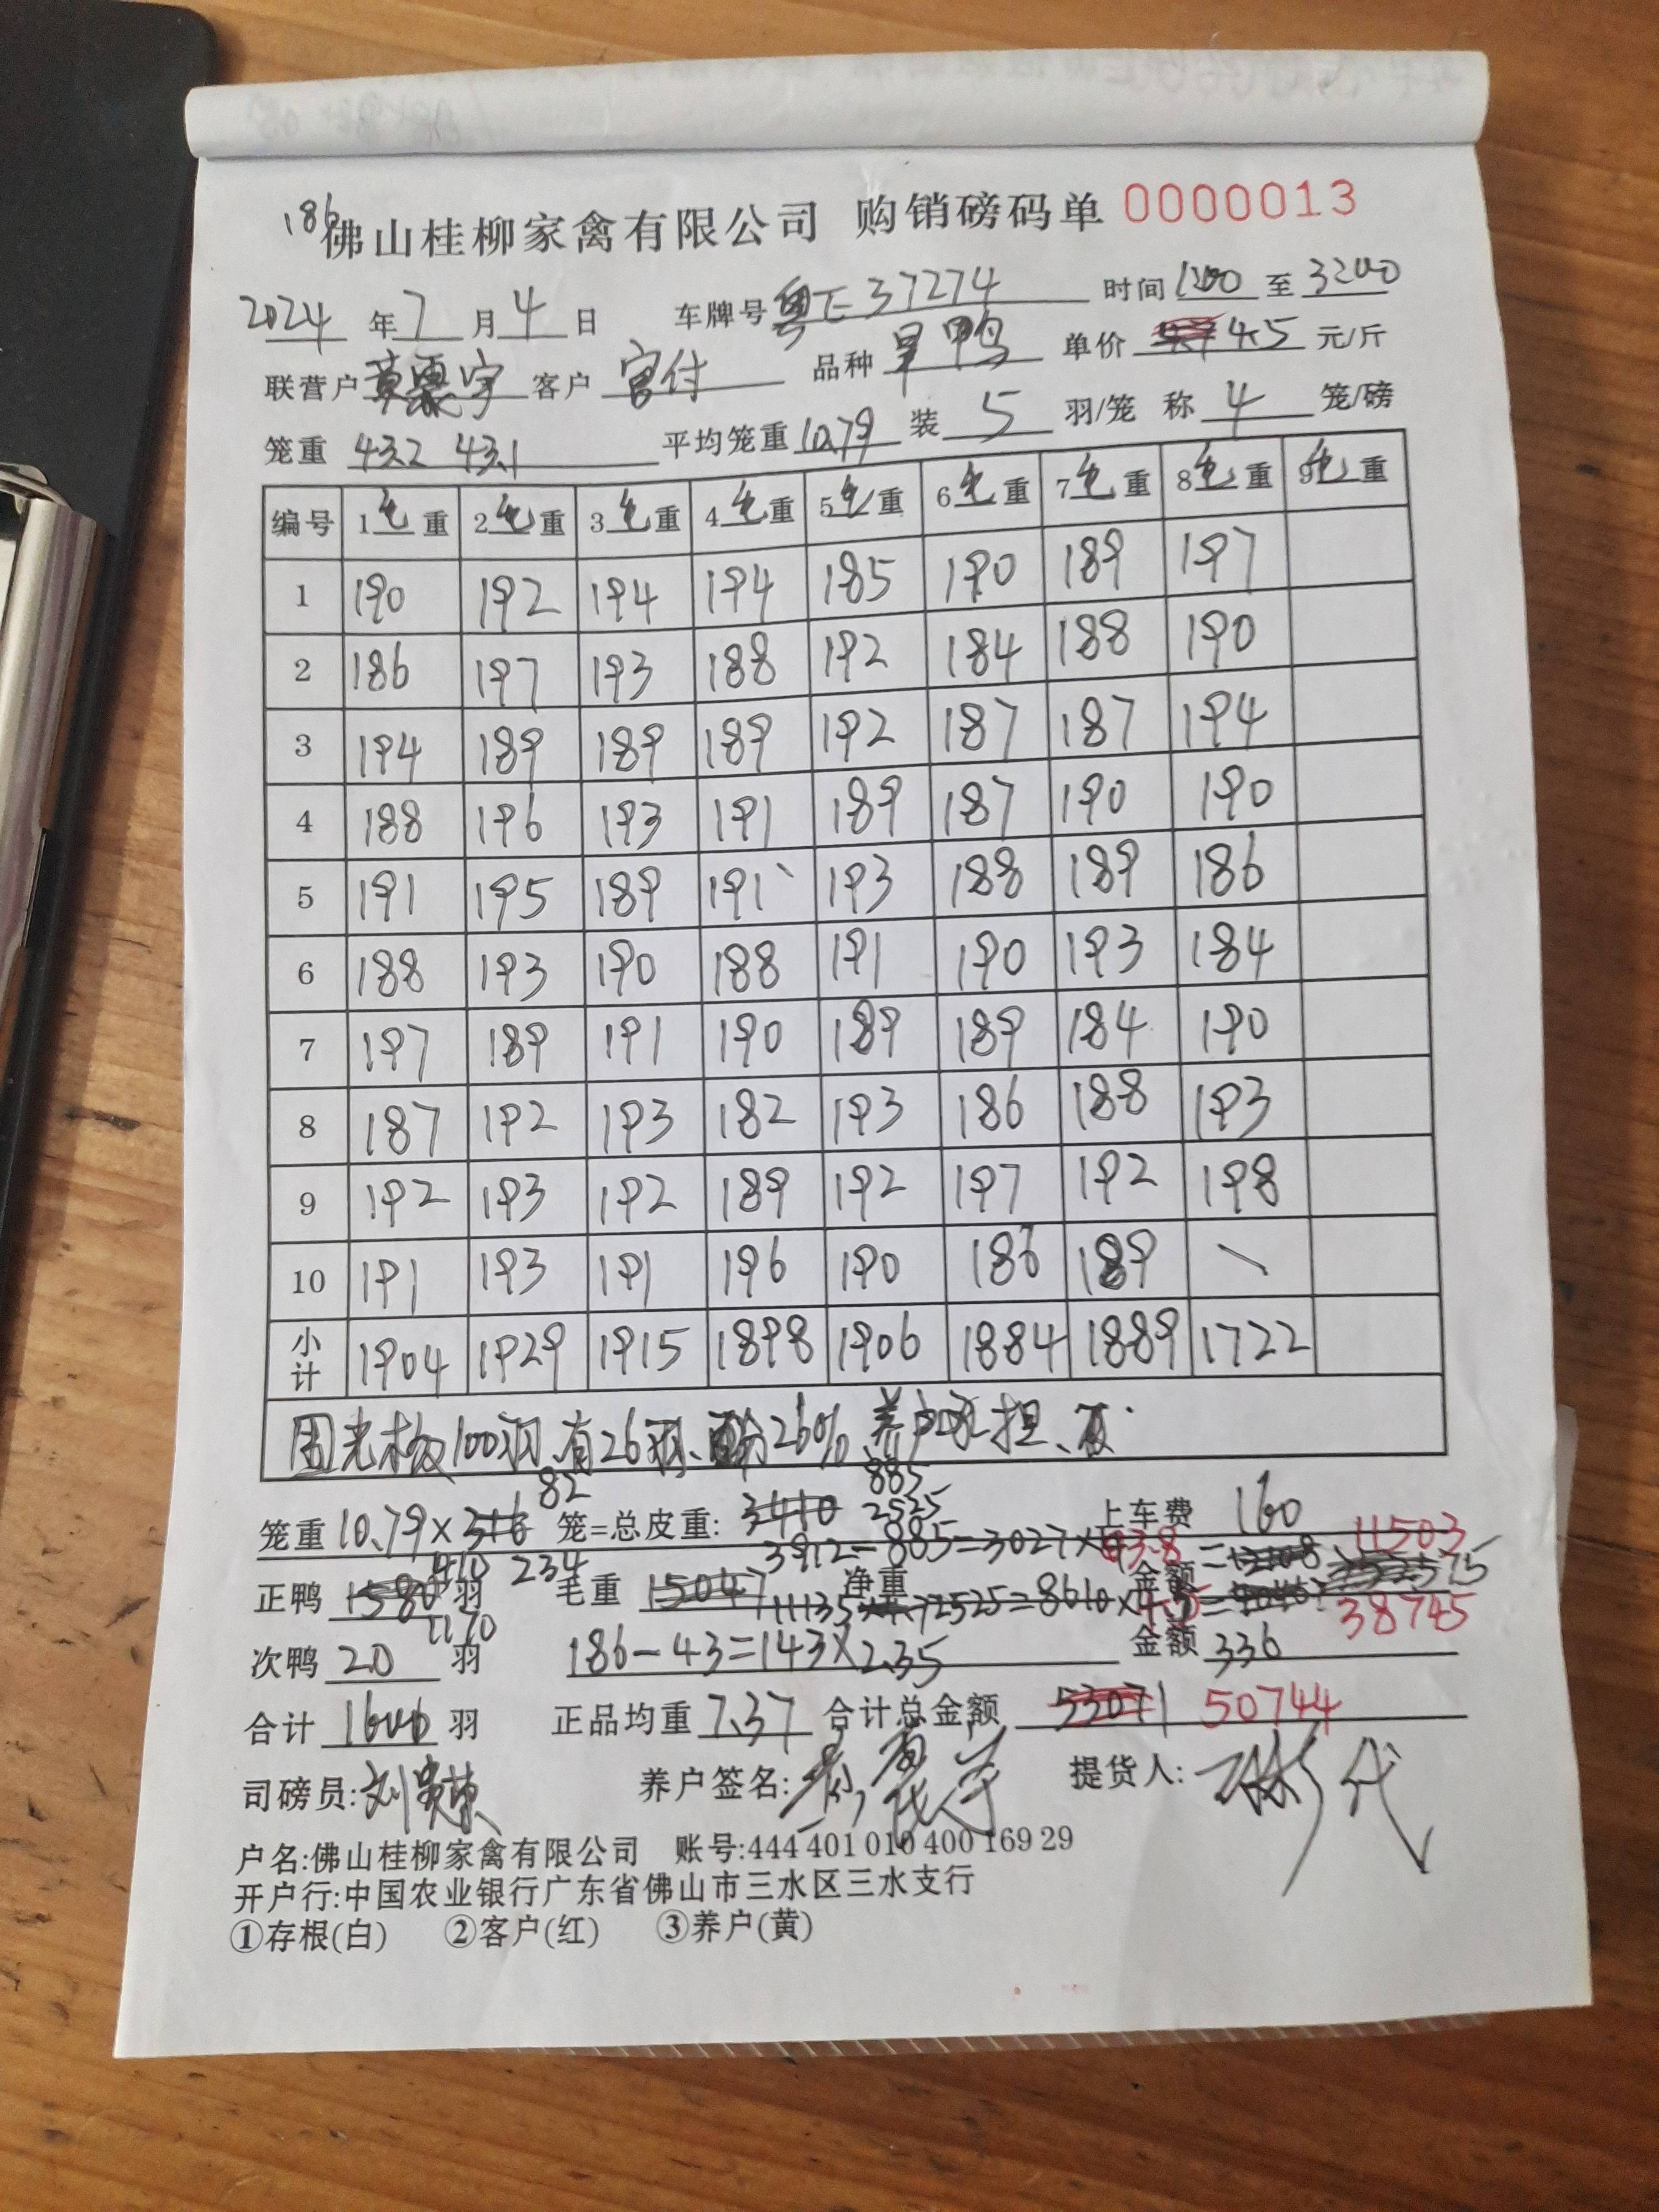 186
佛山桂柳家禽有限公司 购销磅码单 0000013
2024 年 7 月 4 日 车牌号 粤E37274 时间 1200 至 3200
联营户 黄震宇 客户 宫付 品种 旱鸭 单价 4.5 元/斤
笼重 43.2 43.1 平均笼重 10.79 装 5 羽/笼 称 4 笼/磅
编号 1毛重 2毛重 3毛重 4毛重 5毛重 6毛重 7毛重 8毛重 9毛重
1 190 192 194 194 185 190 189 197
2 186 197 193 188 192 184 188 190
3 194 189 189 189 192 187 187 194
4 188 196 193 191 189 187 190 190
5 191 195 189 191 193 188 189 186
6 188 193 190 188 191 190 193 184
7 197 189 191 190 189 189 184 190
8 187 192 193 182 193 186 188 193
9 192 193 192 189 192 197 192 198
10 191 193 191 196 190 186 189 \
小计 1904 1929 1915 1898 1906 1884 1889 1722
100羽、有26羽、26%、养户承担、
82 885
笼重 10.79×316 笼=总皮重: 3410 2525 上车费 160
410 234 3912-885=3027×3.8= 11503
正鸭 1580 羽 毛重 15047 净重 金额
1170 11135-2525=8610×4.5= 38745
次鸭 20 羽 186-43=143×2.35 金额 336
合计 1600 羽 正品均重 7.37 合计总金额 53071 50744
司磅员: 刘贵荣 养户签名: 黄震宇 提货人:
户名:佛山桂柳家禽有限公司 账号:444 401 010 400 169 29
开户行:中国农业银行广东省佛山市三水区三水支行
①存根(白) ②客户(红) ③养户(黄)